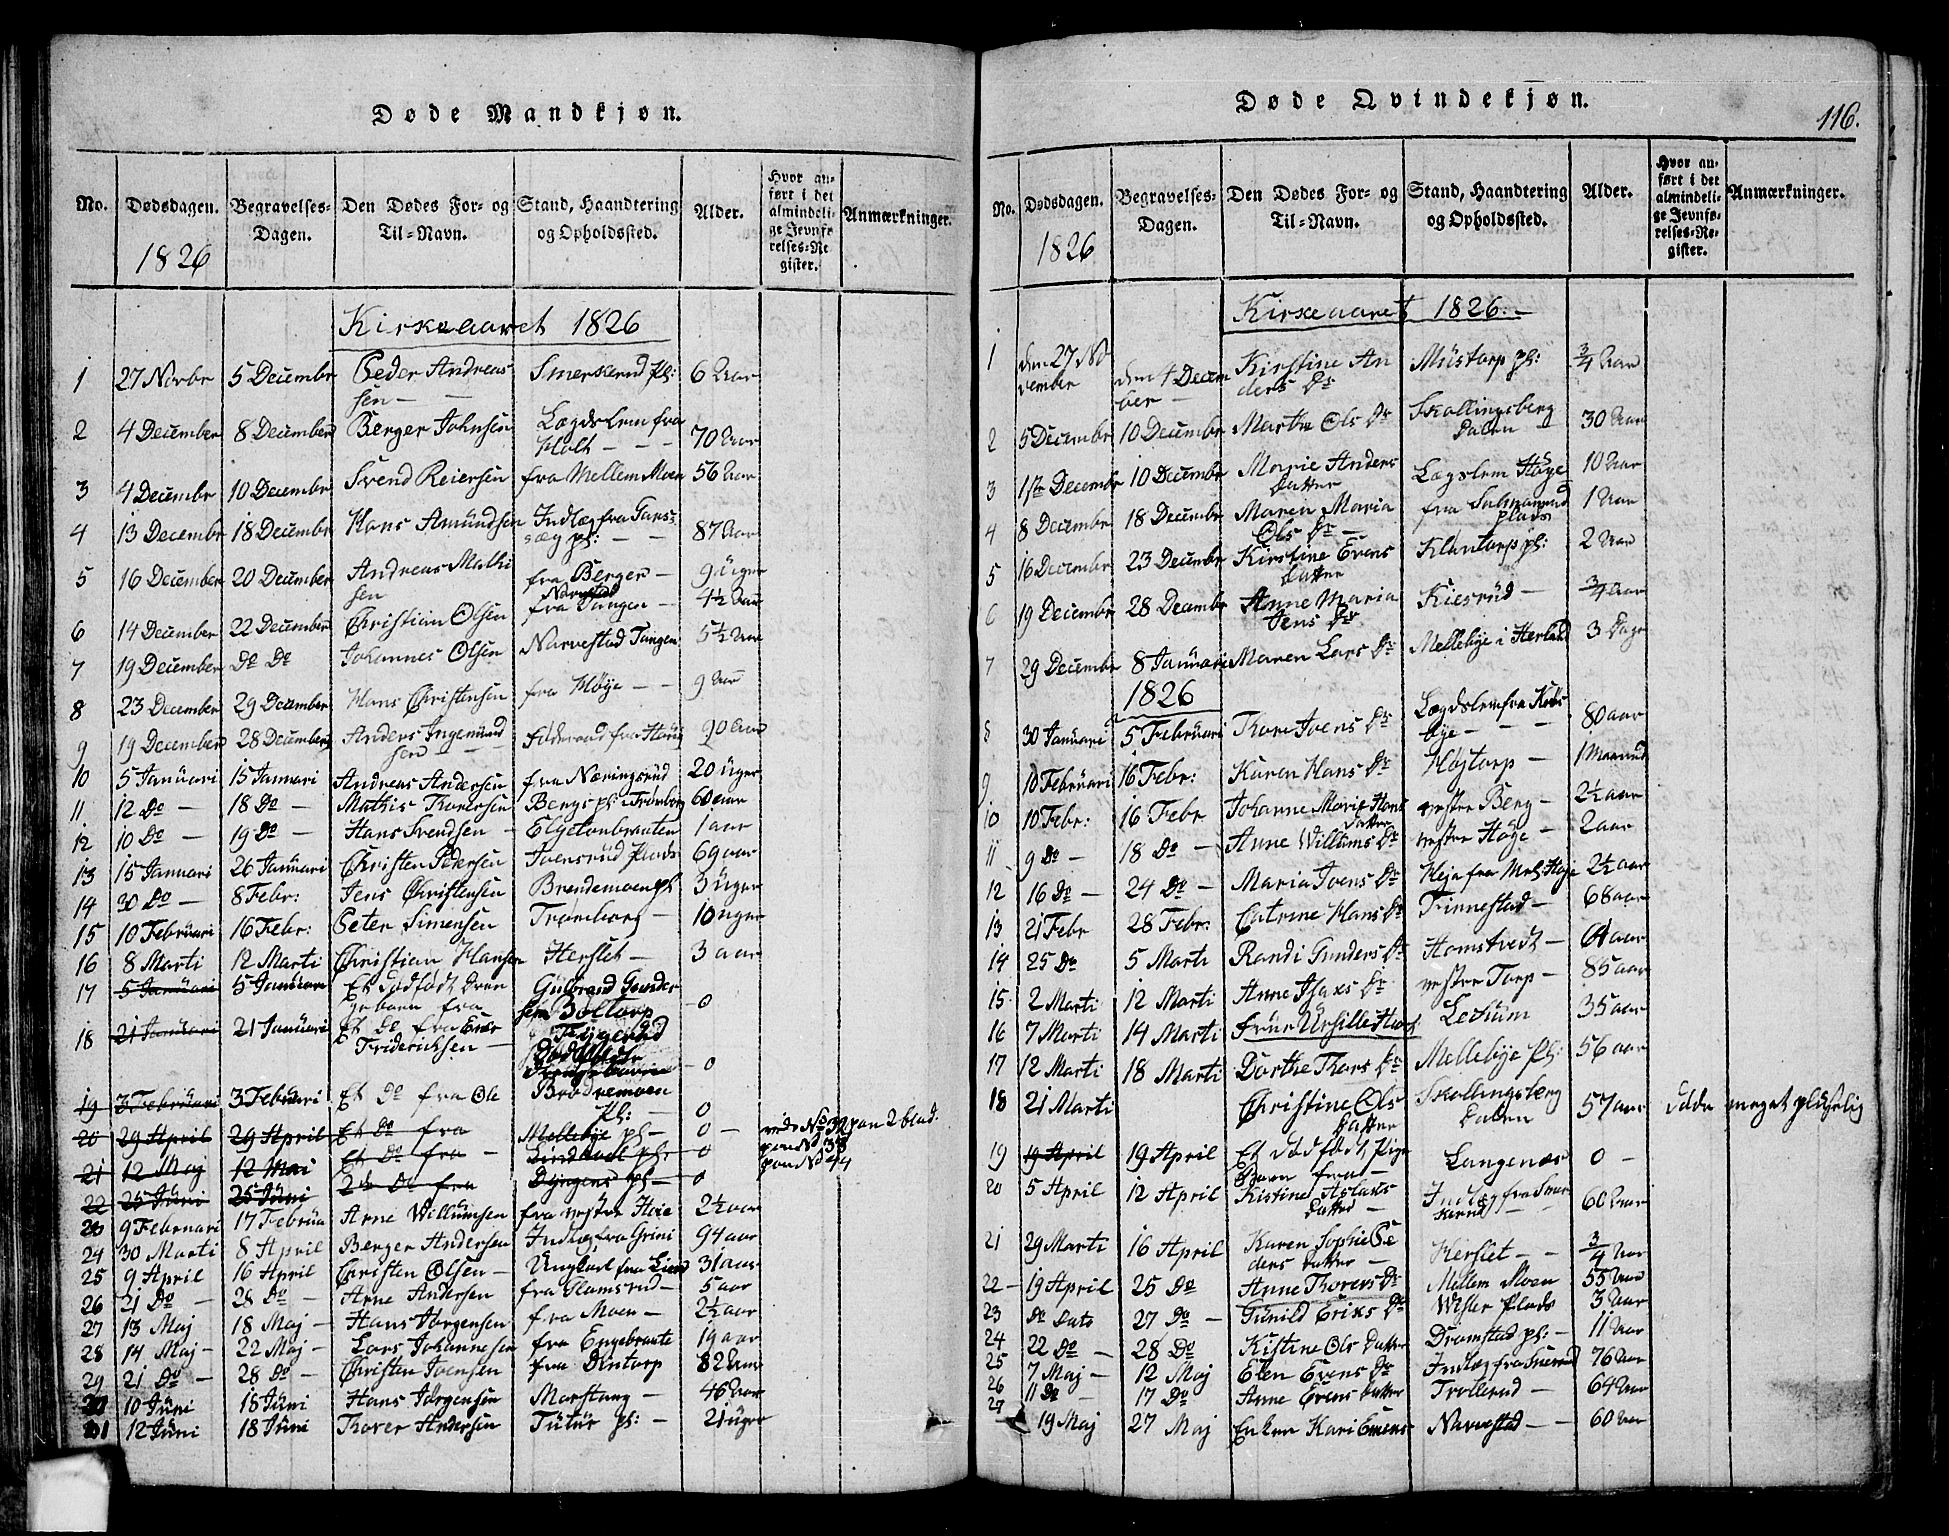 Døde Mandkjøn.
No. Dødsdagen. 1826 Begravelses-Dagen. Den Dødes For- og Til-Navn. Stand, Haandtering og Opholdssted. Alder. Hvor anført i det almindelige Jevnførelses-Register. Anmærkninger.
Kirkeaaret 1826
1 27 Novbr 5 Decembr Peder Andreassen Smerkerud Pl: 6 Aar
2 4 December 8 December Berger Johnsen Lægdslem fra Holt 70 Aar
3 4 Decembr 10 Decembr Svend Reiersen fra Mellem Moen 56 Aar
4 13 Decembr 18 Decembr Hans Amundsen Indlæg fra pl: 87 Aar
5 16 December 20 December Andreas Mathisen fra Berger 9 Uger
6 14 December 22 December Christian Olsen fra Narvestad Tangen 4½ Aar
7 19 December Do Do Johannes Olsen Narvestad Tangen 5½ Aar
8 23 December 29 December Hans Christensen fra Høye 9 Aar
9 19 December 28 December Anders Ingemundsen Føderaad fra 90 Aar
10 5 Januari 15 Januari Andreas Andersen fra Næringsrud 20 Uger
11 12 Do 18 Do Mathis Thoresen Bergs pl i Trømborg 60 aar
12 10 Do 19 Do Hans Svendsen Elgetonbraaten 1 aar
13 15 Januari 26 Januari Christen Pedersen Joensrud Plads 69 aar
14 30 Do 8 Febr: Jens Christensen Brendemoen pl 3 Uger
15 10 Februari 16 Febr: Peter Simensen Trømborg 10 uger
16 8 Marti 12 Marti Christian Hansen Herslet 3 aar
17 5 Januari 5 Januari Et dødfødt Drengebarn fra Gulbrand Gundersen Boltorp 0
18 21 Januari 21 Januari Et Do fra Friderichsen 0
19 3 Februari 3 Februari Et Do fra Ole Brødremoen Pl: 0
20 29 April 29 April Et Do fra Mellebye pl 0 vide No 32 paa 2 blad.
21 12 Maj 12 Mai Et Do fra pl: 0 paa No 38
22 25 Juni 25 Juni 2de Do fra pl 0 paa No 44
23 9 Februari 17 Februa Arne Willumsen fra vestre Høie 2½ aar
24 30 Marti 8 April Berger Andersen Indlæg fra Grini 94 aar
25 9 April 16 April Christen Olsen Ungkarl fra 31 aar
26 21 Do 28 Do Arne Andersen fra Glamsrud 5 aar
27 13 Maj 18 Maj Hans Jørgensen fra Moen 2½ aar
28 14 Maj 22 Maj Lars Johannesen fra Engebraate 19 aar
29 21 Do 28 Do Christen Joensen fra Dintorp 82 Aar
30 10 Juni 18 Juni Hans Jørgensen Morstang 46 Aar
31 12 Juni 18 Juni Thorer Andersen Tutur pl: 21 uger
Døde Qvindekjøn.
116.
No. Dødsdagen. 1826 Begravelses-Dagen. Den Dødes For- og Til-Navn. Stand, Haandtering og Opholdssted. Alder. Hvor anført i det almindelige Jevnførelses-Register. Anmærkninger.
Kirkeaaret 1826.
1 den 27 November den 4 December Kirstine Anders Dr Mustorp pl: ¾ Aar
2 5 Decembr 10 Decembr Marthe Ols Dr Skollingsberg Dalen 30 Aar
3 1ste Decembr 10 Decembr Marie Anders Datter Lægslem Høye 10 Aar
4 8 Decembr 18 Decembr Maren Maria Ols Dr fra plads 1 Aar
5 16 Decembr 23 Decembr Kirstine Evens Datter Klontorp pl: 2 Aar
6 19 Decembr 28 Decembr Anne Maria Jens Dr Kiesrud ¾ Aar
7 29 Decembr 8 Januari Maren Lars Dr Mellebye i Herland 3 Dage
1826
8 30 Januari 5 Februari Thore Joens Dr Lægdslem fra 80 aar
9 10 Februari 16 Febr: Karen Hans Dr Højtorp 1 Maaned
10 10 Febr: 16 Febr Johanne Marie Hans Datter vestre Berg 2½ aar
11 9 Do 18 Do Anne Willums Dr vestre Høye 2 aar
12 16 Do 24 Do Maria Joens Dr fra Høje 2½ aar
13 21 Febr 28 Febr: Catrine Hans Dr Finnestad 68 aar
14 25 Do 5 Marti Randi Gunders Dr Homstvedt 61 aar
15 2 Marti 12 Marti Anne Isaxs Dr vestre Torp 85 aar
16 7 Marti 14 Marti Frue Ursille Lecium 35 aar
17 12 Marti 18 Marti Dorthe Thors Dr Mellebye Pl: 56 aar
18 21 Marti Christine Ols Datter Skollingsberg Dalen 57 aar døde meget pludselig
19 19 April 19 April Et dødfødt Pige Barn fra Langenæs 0
20 5 April 12 April Kistine Aslaks Datter Indlæg fra Smerkerud 60 Aar
21 29 Marti 16 April Karen Sophie Peders Datter Herslet ¾ Aar
22 19 April 25 Do Anne Thorers Dr Mellem Moen 55 Aar
23 Do Dato 27 Do Gunild Eriks Dr Plads 3 Aar
24 22 Do 28 Do Kistine Ols Datter Dramstad pl: 11 Aar
25 7 Maj 12 Maj Elen Evens Dr Indlæg fra 76 Aar
26 11 Do 17 Do Anne Evens Datter Trollerud 64 Aar
27 19 Maj 27 Maj Enken Kari Evens Narvestad 60 Aar